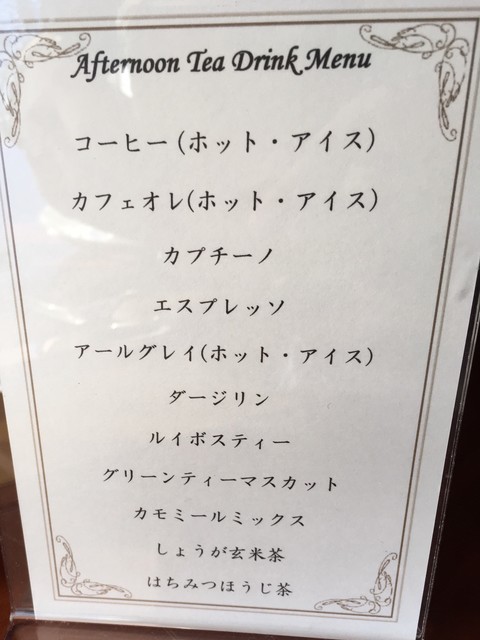 Afternoon Tea Drink Menu
コーヒー(ホット・アイス)
カフェオレ(ホット・アイス)
カプチーノ
エスプレッソ
アールグレイ(ホット・アイス)
ダージリン
ルイボスティー
グリーンティーマスカット
カモミールミックス
しょうが玄米茶
はちみつほうじ茶